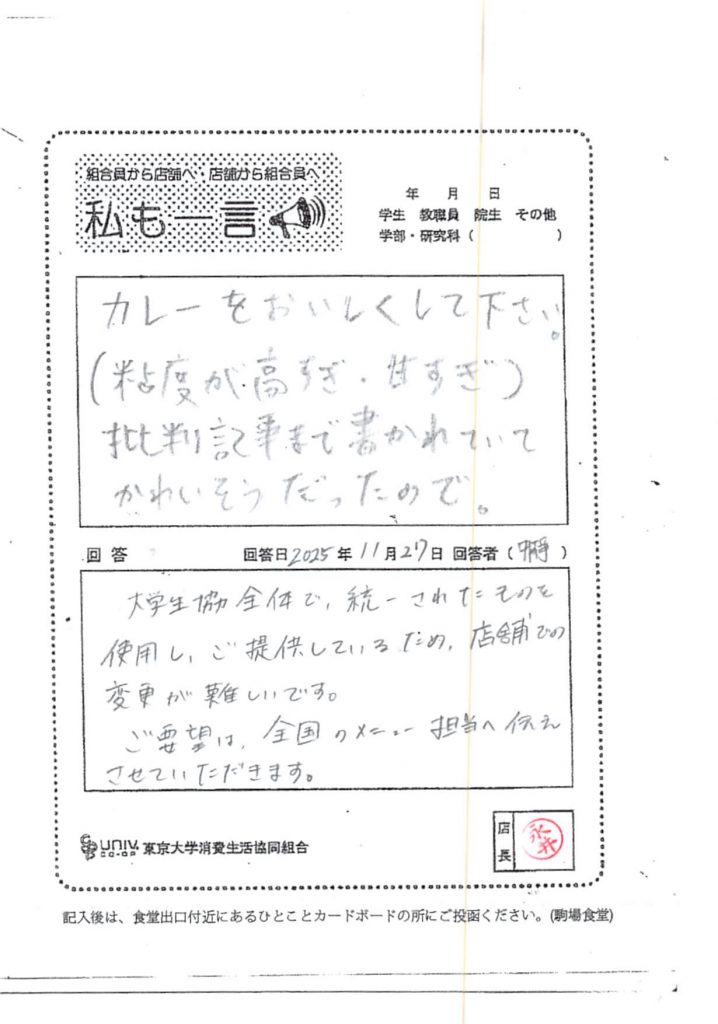 組合員から店舗へ・店舗から組合員へ
私も一言
年 月 日
学生 教職員 院生 その他
学部・研究科( )
カレーをおいしくして下さい。
(粘度が高すぎ・甘すぎ)
批判記事まで書かれていて
かわいそうだったので。
回答 回答日2025年11月27日 回答者( )
大学生協全体で、統一されたものを
使用し、ご提供しているため、店舗での
変更が難しいです。
ご要望は、全国のメニュー担当へ伝え
させていただきます。
UNIV.
CO-OP
東京大学消費生活協同組合
店長
永井
記入後は、食堂出口付近にあるひとことカードボードの所にご投函ください。(駒場食堂)